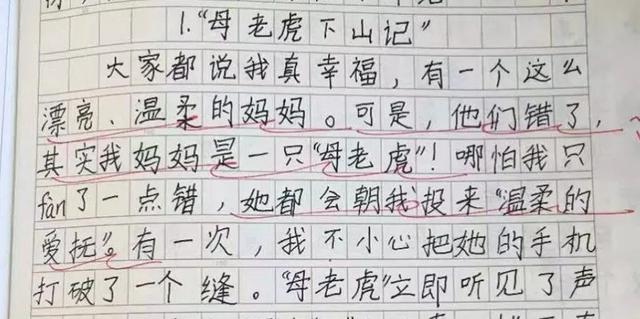 1.“母老虎下山记”
大家都说我真幸福，有一个这么
漂亮、温柔的妈妈。可是，他们错了，
其实我妈妈是一只“母老虎”！哪怕我只
fàn了一点错，她都会朝我投来“温柔的
爱抚”。有一次，我不小心把她的手机
打破了一个缝。“母老虎”立即听见了声